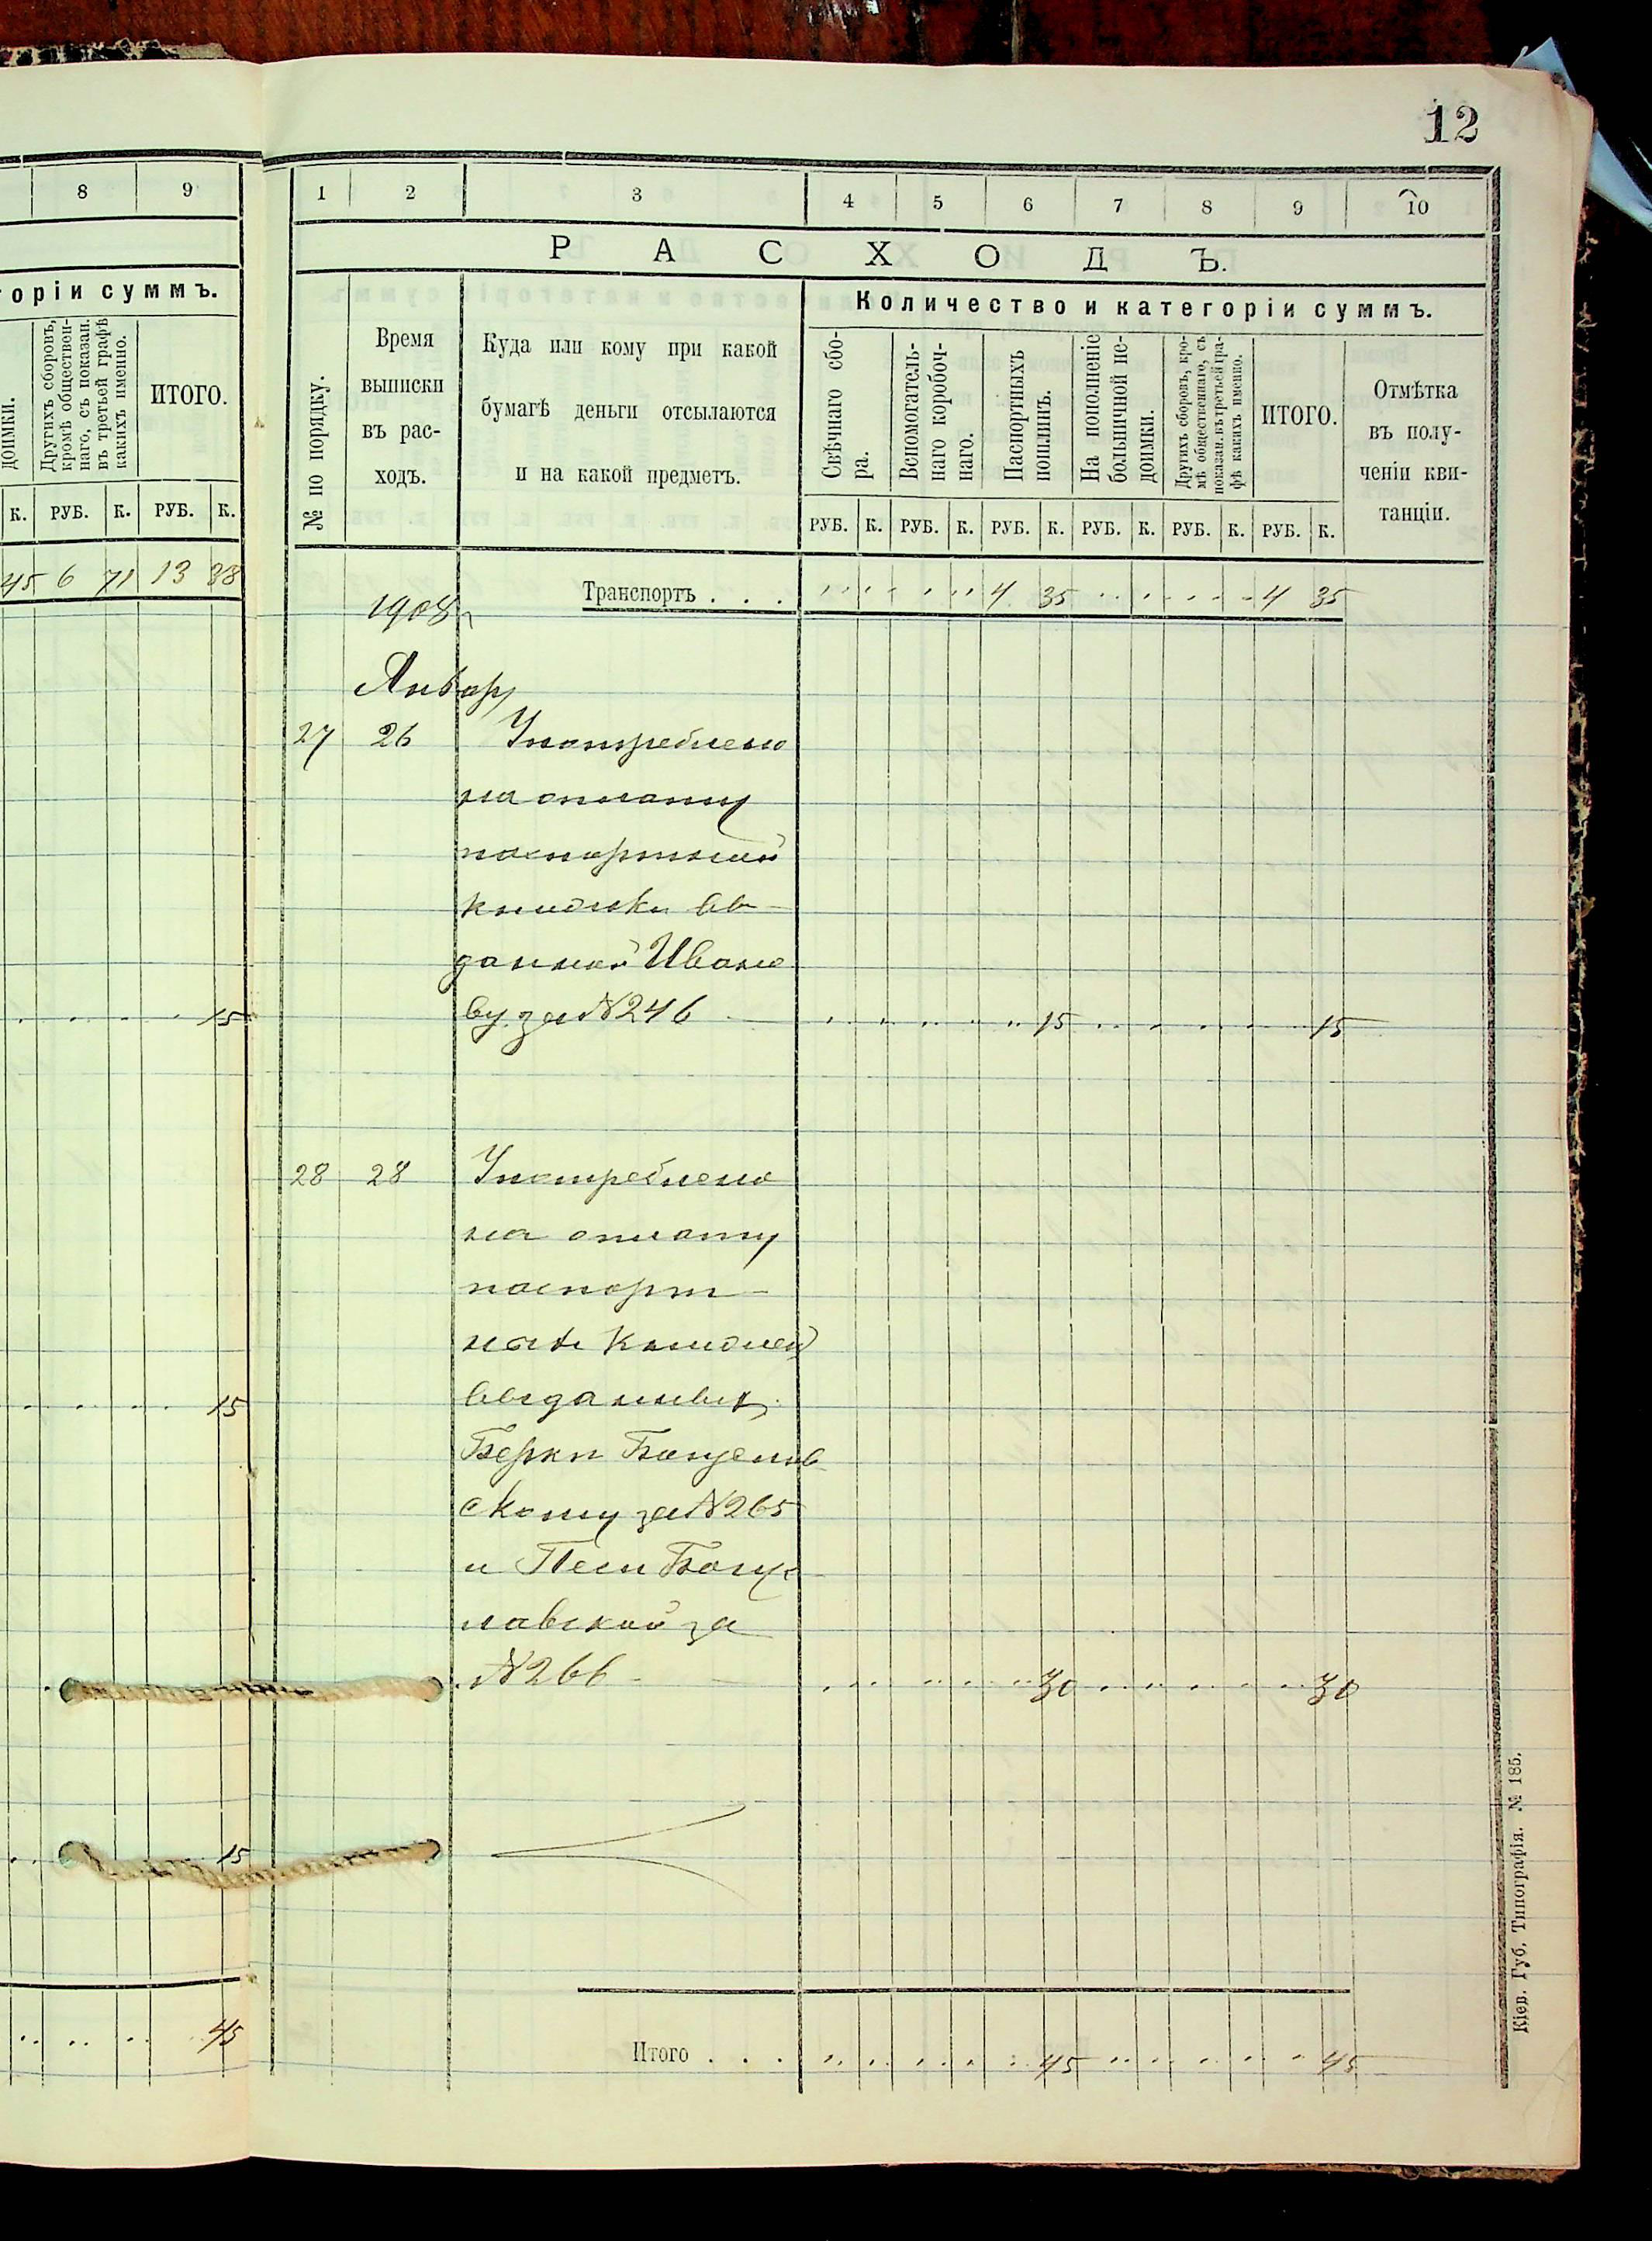 12
8 9
горіи суммъ.
доимки.
Другихъ сборовъ,
кромѣ обществен-
наго, съ показан.
въ третьей графѣ
какихъ именно.
ИТОГО.
К. РУБ. К. РУБ. К.
45 6 71 13 88
15
15
15
45
1 2 3 4 5 6 7 8 9 10
РАСХОДЪ.
№ по порядку.
Время
выписки
въ рас-
ходъ.
Куда или кому при какой
бумагѣ деньги отсылаются
и на какой предметъ.
Количество и категоріи суммъ.
Свѣчнаго сбо-
ра.
Вспомогатель-
наго коробоч-
наго.
Паспортныхъ
пошлинъ.
На пополненіе
больничной не-
доимки.
Другихъ сборовъ, кро-
мѣ общественнаго, съ
показан. въ третьей гра-
фѣ какихъ именно.
ИТОГО.
Отмѣтка
въ полу-
ченіи кви-
танціи.
РУБ. К. РУБ. К. РУБ. К. РУБ. К. РУБ. К. РУБ. К.
Транспортъ . . . 4 35 4 35
1908 г
Январ
27 26 Употреблено
на оплату
паспортной
книжки вы-
данной Ивано
ву за №246 15 15
28 28 Употреблено
на оплату
паспорт-
ныхъ книжекъ
выданныхъ
Берки
скому за №265
и Песи Богу
славской за
№266 30 30
Итого . . . 45 45
Кіев. Губ. Типографія. № 185.